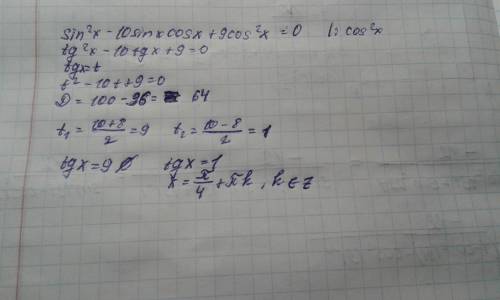 sin²x - 10sinxcosx + 9cos²x = 0 |: cos²x
tg²x - 10tgx + 9 = 0
tgx = t
t² - 10t + 9 = 0
D = 100 - 36 = 64
t₁ = (10+8)/2 = 9 t₂ = (10-8)/2 = 1
tgx = 9 ∅ tgx = 1
x = π/4 + πk, k ∈ z